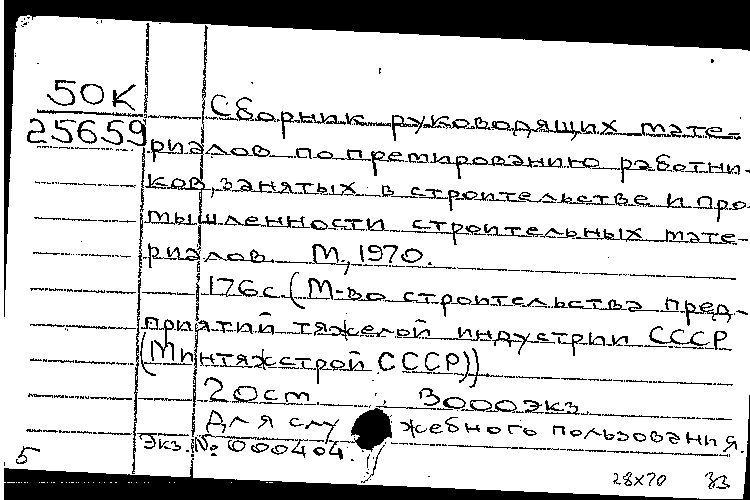 50К
25659
Сборник руководящих мате-
риалов по премированию работни-
ков, занятых в строительстве и про
мышленности строительных мате-
риалов. М., 1970.
176с. (М-во строительства пред-
приятий тяжелой индустрии СССР
(Минтяжстрой СССР)).
20см. 3000экз.
Для служебного пользования.
Экз. № 000404.
5
28х70 33